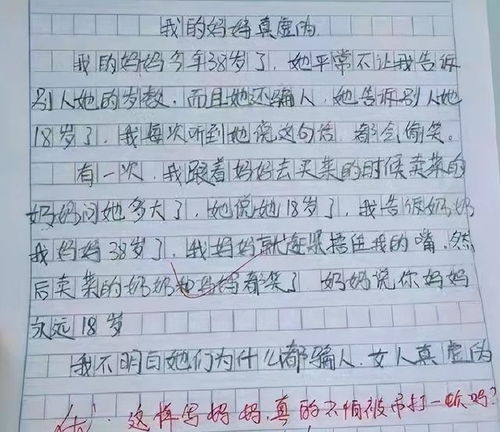 我的妈妈真虚伪
我的妈妈今年38岁了，她平常不让我告诉
别人她的岁数，而且她还骗人，她告诉别人她
18岁了，我每次听到她说这句话，都会偷笑。
有一次，我跟着妈妈去买菜的时候卖菜的
奶奶问她多大了，她说她18岁了，我告诉奶奶
我妈妈38岁了，我妈妈就赶紧捂住我的嘴，然
后卖菜的奶奶和妈妈都笑了 奶奶说你妈妈
永远18岁
我不明白她们为什么都骗人，女人真虚伪
这样写妈妈，真的不怕被吊打一顿吗？